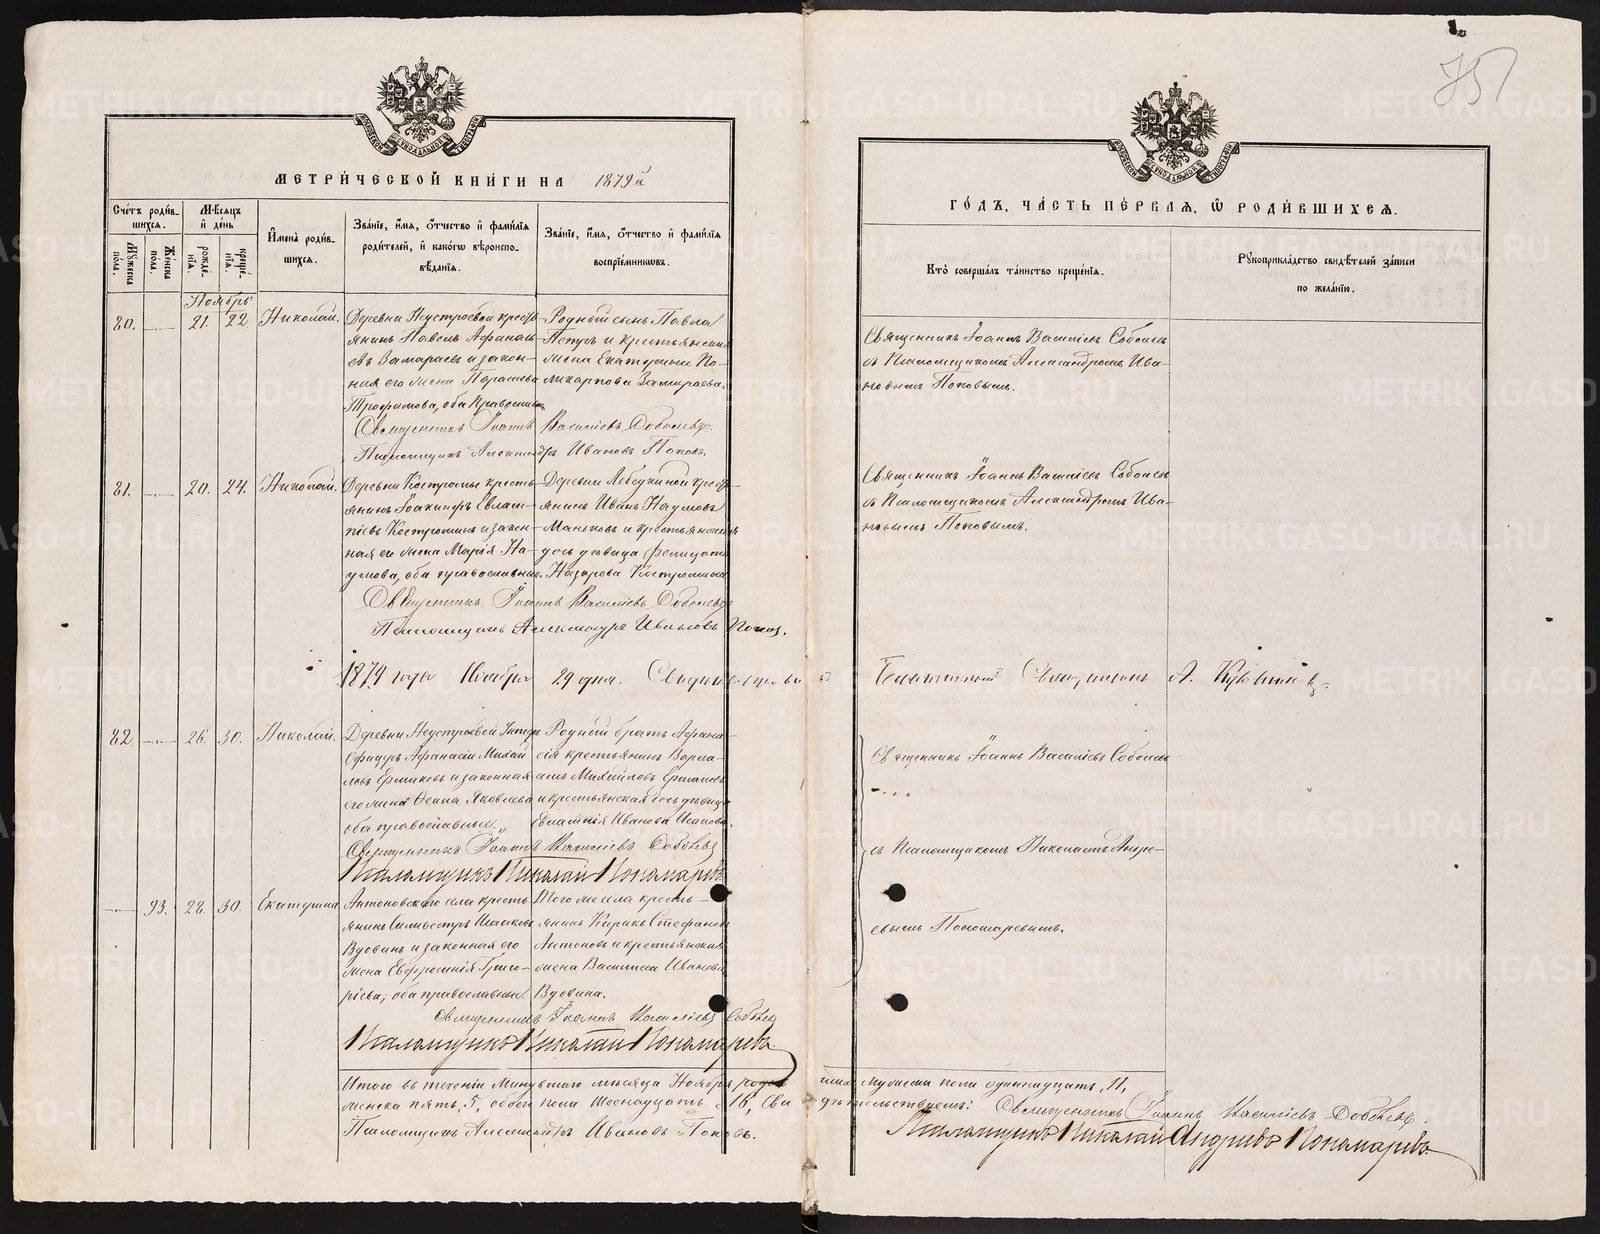 75
МЕТРИ́ЧЕСКОЙ КНИ́ГИ НА 1879й
ГО́ДЪ, ЧА́СТЬ ПЕ́РВАЯ, Ѡ РОДИ́ВШИХСЯ.
Сче́тъ роди́в-
шихся.
Мꙋ́жеска
пола.
Же́нска
пола.
Мѣ́сяцъ
и̂ де́нь
рожде́-
нїя.
креще́-
нїя.
И̂мена̀ роди́в-
шихся.
Зва́нїе, и́мя, о́тчество и̂ фами́лїя
роди́телей, и̂ како́гѡ вѣроиспо-
вѣ́данїя.
Зва́нїе, и́мя, о́тчество и̂ фами́лїя
воспрїе́мниковъ.
Кто̀ соверша́лъ та́инство креще́нїя.
Рꙋкоприкла́дство свидѣ́телей за́писи
по жела́нїю.
Ноябрь
80.
21.
22
Николай.
Деревни Неустроевой кресть-
янинъ Павелъ Афанась-
евъ Замараевъ и закон-
ная его жена Параскева
Трофимова, оба православн.
Родный сынъ Павла
Петръ и крестьянская
жена Екатерина По-
ликарпова Замараева.
Священникъ Іоаннъ Васильевъ Соболевъ
съ Псаломщикомъ Александромъ Ива-
новымъ Поповымъ.
Священникъ Іоаннъ Васильевъ Соболевъ.
Псаломщикъ Александръ Ивановъ Поповъ.
81.
20.
24.
Николай.
Деревни Костромы кресть-
янинъ Іоакимъ Евлам-
піевъ Костроминъ и закон-
ная его жена Марія На-
умова, оба православные.
Деревни Лебедкиной кресть-
янинъ Иванъ Наумовъ
Маньковъ и крестьянская
дочь девица Фелицата
Назарова Костромина
Священникъ Іоаннъ Васильевъ Соболевъ
съ Псаломщикомъ Александромъ Ива-
новымъ Поповымъ.
Священникъ Іоаннъ Васильевъ Соболевъ
Псаломщикъ Александръ Ивановъ Поповъ.
1879 года Ноября 29 дня. Свидетельствовалъ Благочинный Священникъ А.
82.
26.
30.
Николай.
Деревни Неустроевой Унтеръ
Офицеръ Афанасій Михай-
ловъ Ермаковъ и законная
его жена Ѳенна Яковлева
оба православные.
Родный братъ Афана-
сія крестьянинъ Варла-
амъ Михайловъ Ермаковъ
и крестьянская дочь девица
Евлампія Иванова Исакова.
Священникъ Іоаннъ Васильевъ Соболевъ
съ Псаломщикомъ Николаемъ Андре-
евымъ Пономаревымъ.
Священникъ Іоаннъ Васильевъ Соболевъ
Псаломщикъ Николай Пономаревъ
93.
28.
30.
Екатерина
Антоновскаго села кресть-
янинъ Сильвестръ Исаковъ
Вдовинъ и законная его
жена Евфросинія Григо-
рьева; оба православные.
Того же села кресть-
янинъ Кирикъ Стефановъ
Антоновъ и крестьянская
жена Василиса Иванова
Вдовина.
Священникъ Іоаннъ Васильевъ Соболевъ
Псаломщикъ Николай Пономаревъ
Итого въ теченіи минувшаго месяца Ноября родилось мужеска пола одиннадцать, 11,
женска пять, 5, обоего пола шеснадцать 16, Свидетельствуемъ: Священникъ Іоаннъ Васильевъ Соболевъ.
Псаломщикъ Александръ Ивановъ Поповъ.
Псаломщикъ Николай Андреевъ Пономаревъ
METRIKI.GASO-URAL.RU